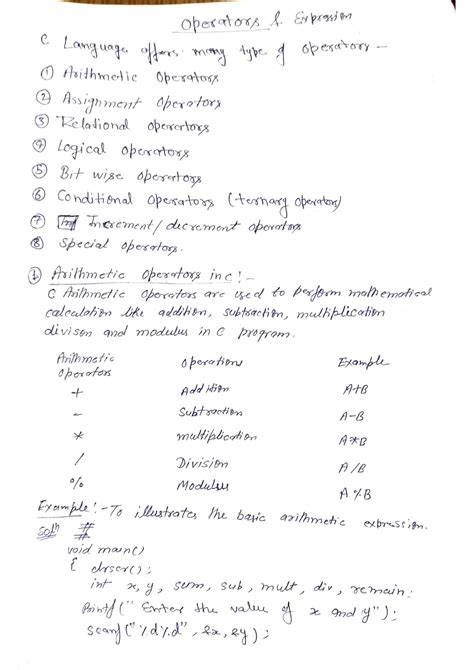 Operators & Expression
C Language offers many type of operators -
① Arithmetic Operators
② Assignment Operators
③ Relational operators
④ Logical operators
⑤ Bit wise operators
⑥ Conditional Operators (ternary operators)
⑦ Increment/decrement operators
⑧ Special operators.
① Arithmetic Operators in c! -
C Arithmetic Operators are used to perform mathematical
calculation like addition, subtraction, multiplication
divison and modulus in C program.
Arithmetic Operators Operations Example
+ Addition A+B
- Subtraction A-B
* multiplication A*B
/ Division A/B
% Modulus A%B
Example! - To illustrates the basic arithmetic expression.
Solⁿ #
#
void main()
{ clrscr();
int x, y, sum, sub, mult, div, remain;
Printf(" Enter the value of x and y");
scanf("%d%d", &x, &y);